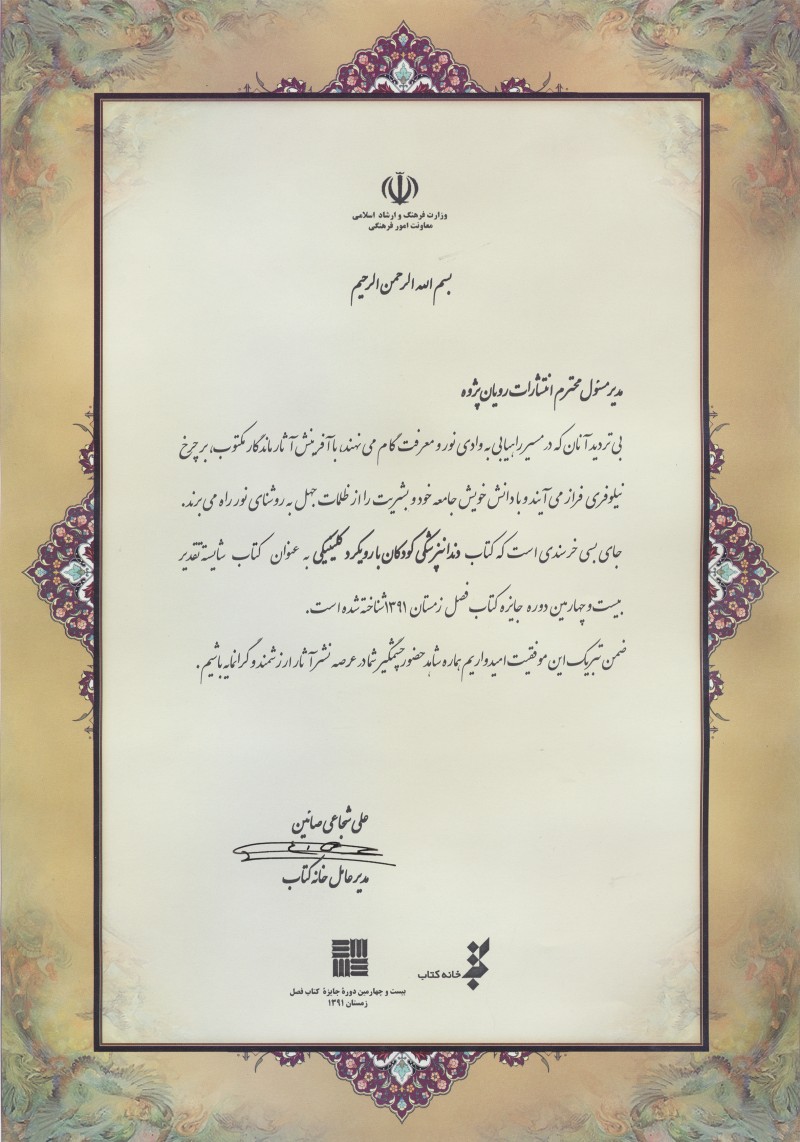 وزارت فرهنگ و ارشاد اسلامی
معاونت امور فرهنگی
بسم الله الرحمن الرحیم
مدیر مسئول محترم انتشارات رویان پژوه
بی تردید آنان که در مسیر راهیابی به وادی نور و معرفت گام می نهند، با آفرینش آثار ماندگار مکتوب، بر چرخ
نیلوفری فراز می آیند و با دانش خویش جامعه خود و بشریت را از ظلمات جهل به روشنای نور راه می برند.
جای بسی خرسندی است که کتاب دندانپزشکی کودکان با رویکرد کلینیکی به عنوان کتاب شایسته تقدیر
بیست و چهارمین دوره جایزه کتاب فصل زمستان ۱۳۹۱ شناخته شده است.
ضمن تبریک این موفقیت امیدواریم هماره شاهد حضور چشمگیر شما در عرصه نشر آثار ارزشمند و گرانمایه باشیم.
علی شجاعی صائین
مدیر عامل خانه کتاب
خانه کتاب
بیست و چهارمین دورهٔ جایزهٔ کتاب فصل
زمستان ۱۳۹۱